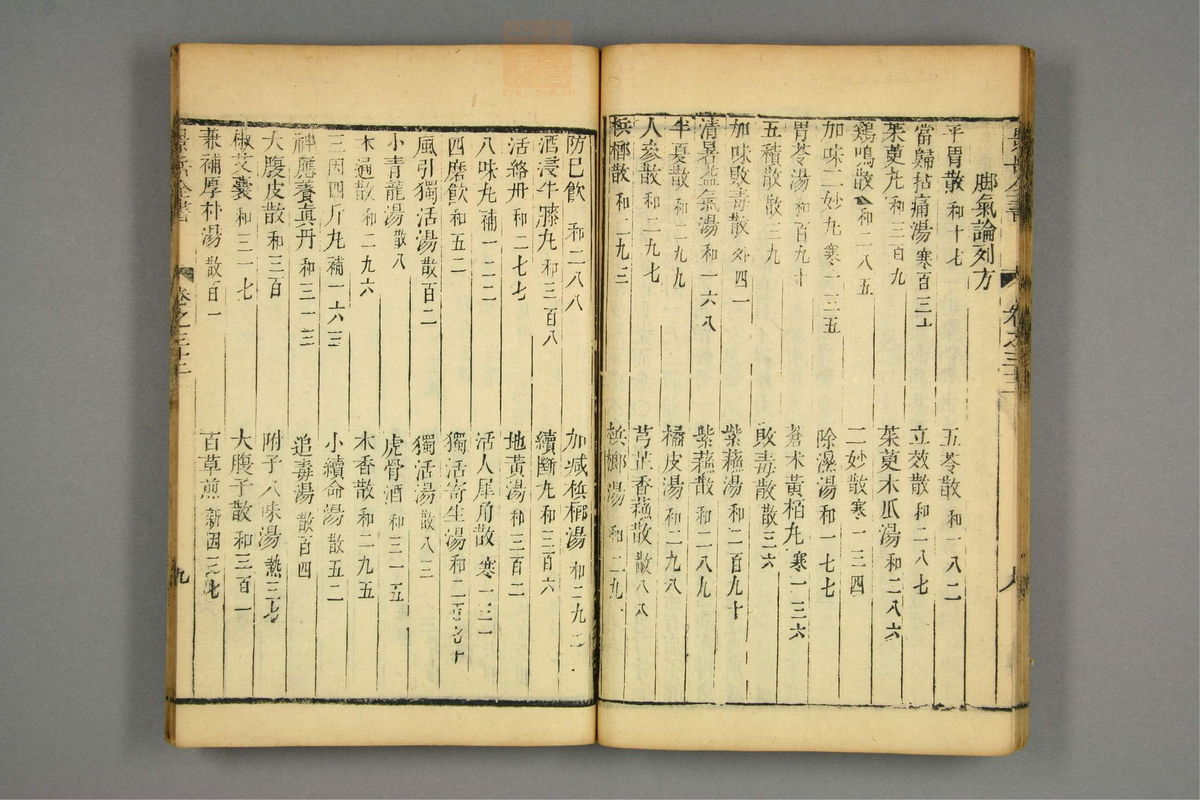 景岳全書 卷之三十二
脚氣論列方
平胃散 和十七 五苓散 和一八二
當歸拈痛湯 寒百三十 立效散 和二八七
茱萸丸 和三百九 茱萸木瓜湯 和二八六
鷄鳴散 和二八五 二妙散 寒一三四
加味二妙丸 寒一三五 除濕湯 和一七七
胃苓湯 和百九十 蒼术黃栢丸 寒一三六
五積散 散三九 敗毒散 散三六
加味敗毒散 外四一 紫蘓湯 和二百九十
清暑益氣湯 和一六八 紫蘓散 和二八九
半夏散 和二九九 橘皮湯 和二九八
人参散 和二九七 芎芷香蘓散 散八八
梹榔散 和二九三 梹榔湯 和二九
防巳飲 和二八八 加减梹榔湯 和二九二
酒浸牛膝丸 和三百八 續斷丸 和三百六
活絡丹 和二七七 地黃湯 和三百二
八味丸 補一二二 活人犀角散 寒一三一
四磨飲 和五二 獨活寄生湯 和二百七十
風引獨活湯 散百二 獨活湯 散八三
小青龍湯 散八 虎骨酒 和三一五
木通散 和二九六 木香散 和二九五
三因四斤丸 補一六三 小續命湯 散五二
神應養真丹 和三一三 追毒湯 散百四
大腹皮散 和三百 附子八味湯 熱三七
椒艾囊 和三一七 大腹子散 和三百一
兼補厚朴湯 散百一 百草煎 新因三七
景岳全書 卷之三十二 九